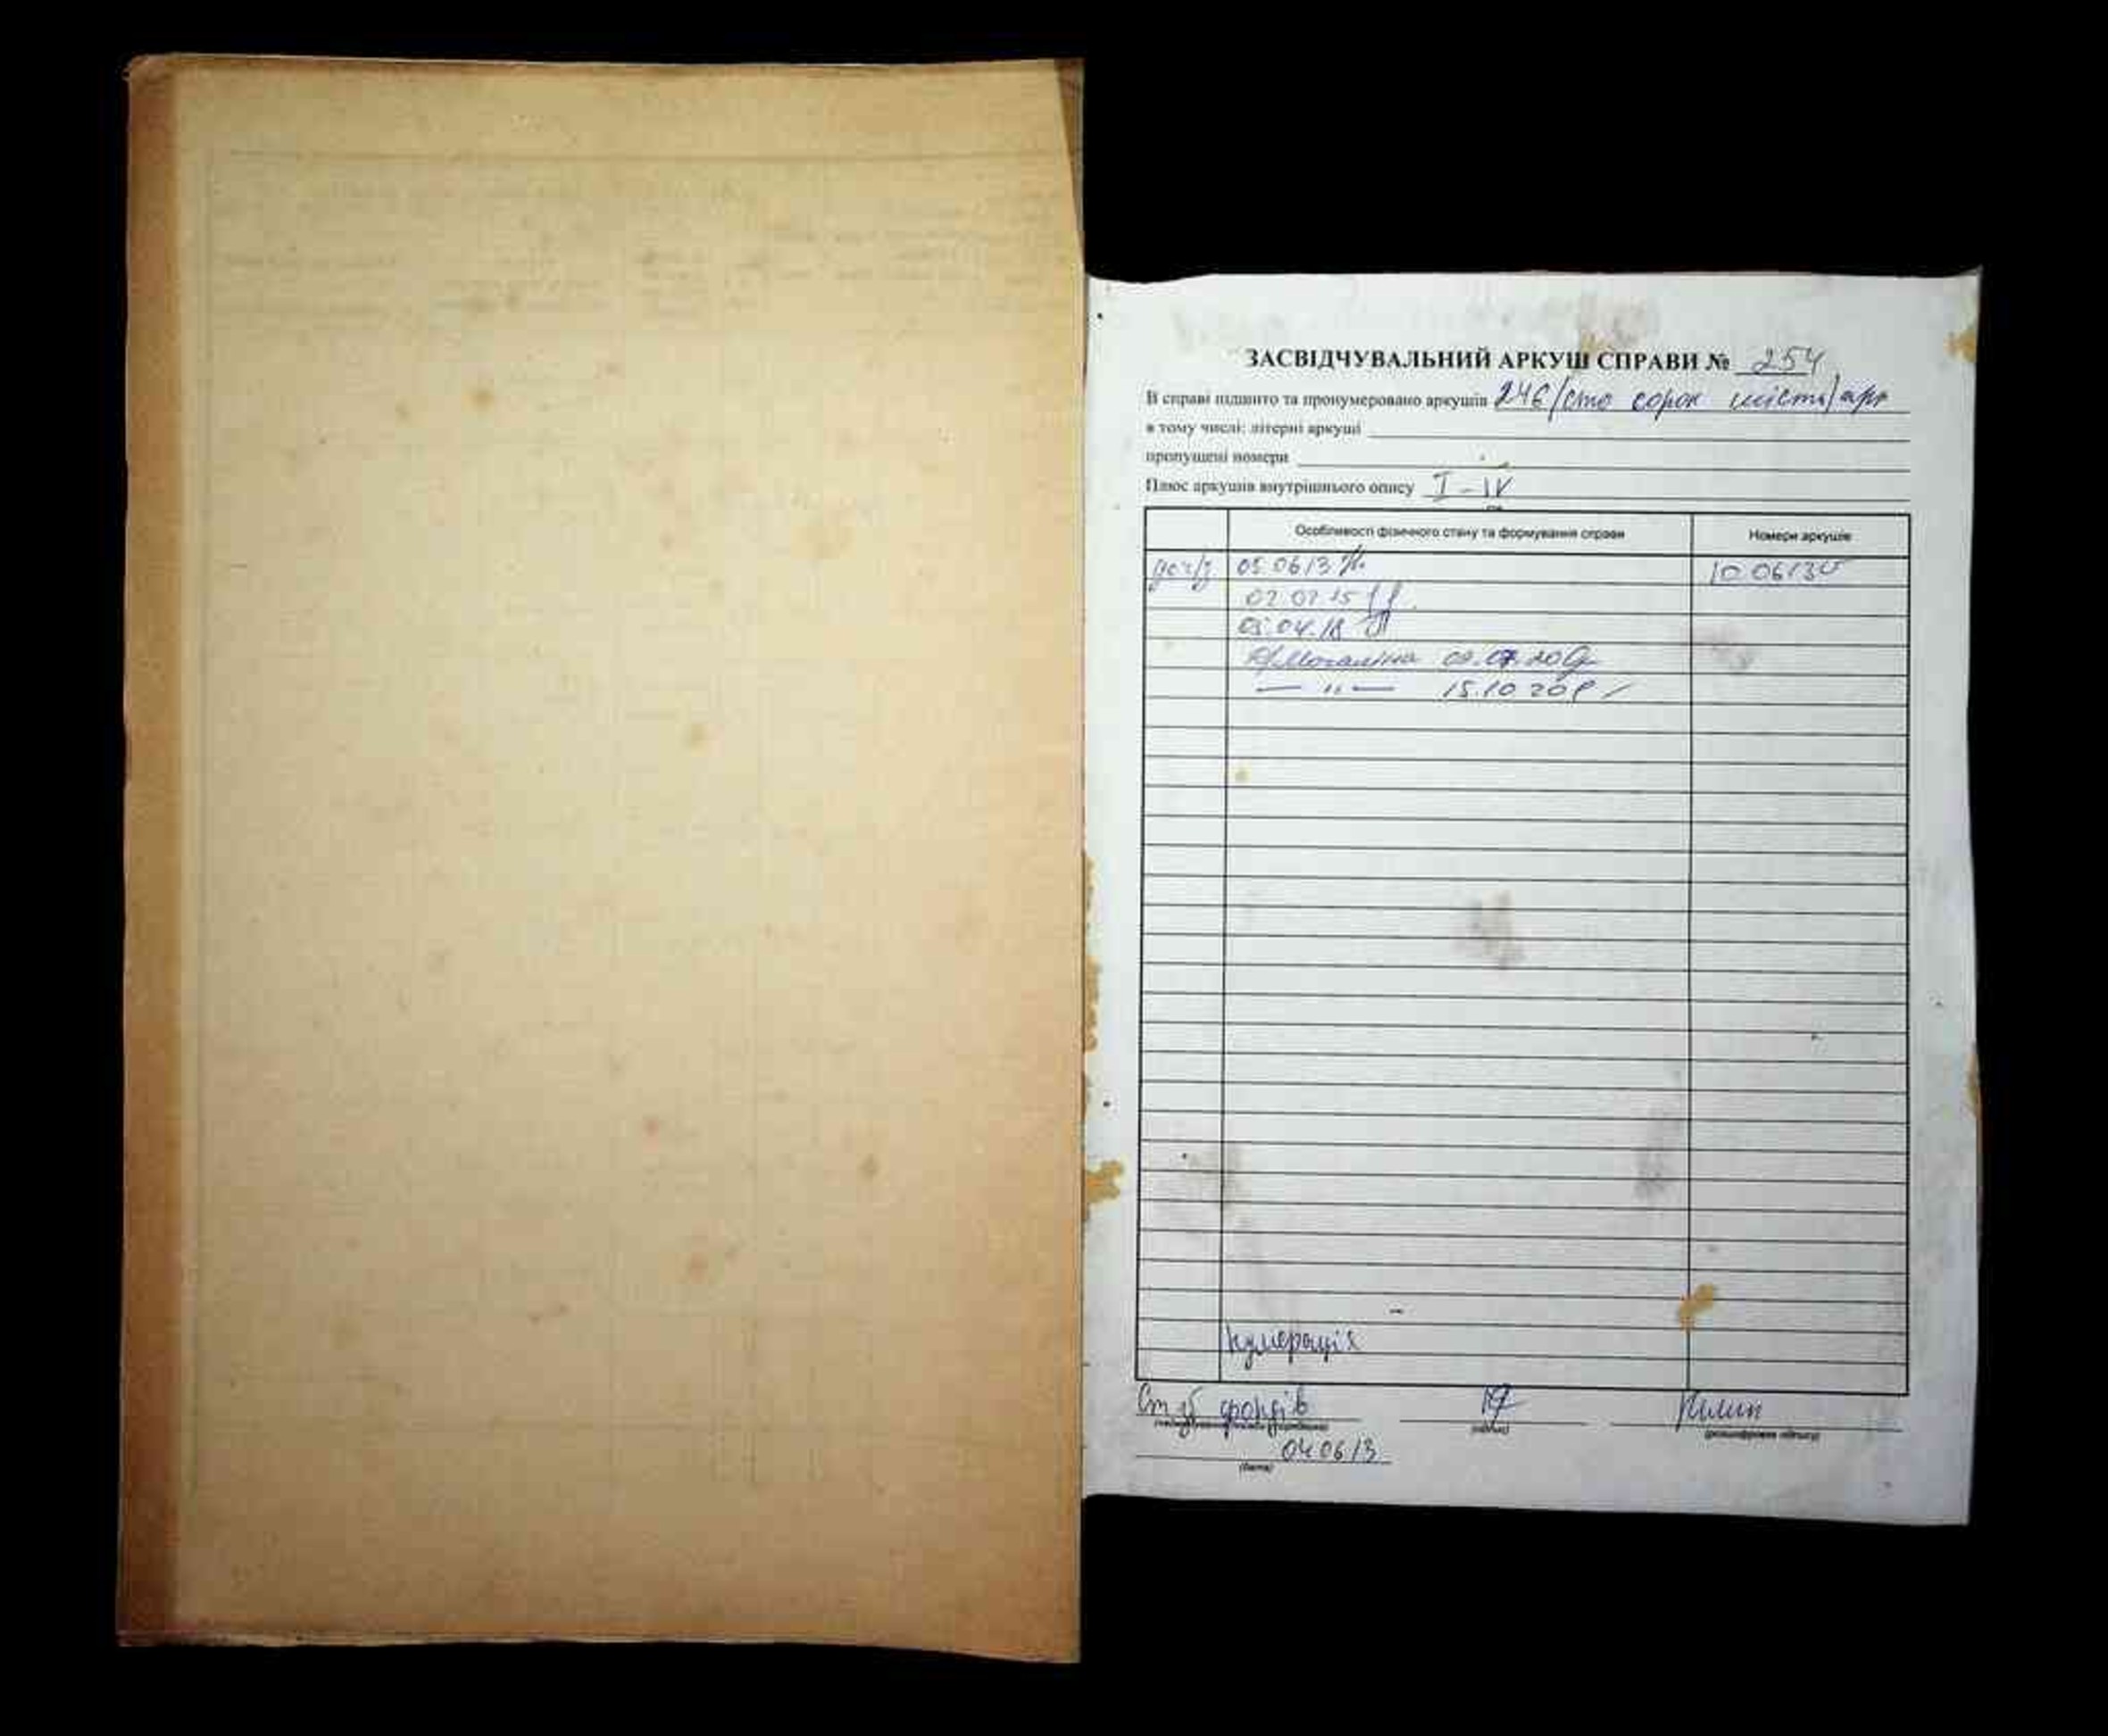 ЗАСВІДЧУВАЛЬНИЙ АРКУШ СПРАВИ № 254
В справі підшито та пронумеровано аркушів 246 /сто сорок шість/ арк
в тому числі: літерні аркуші
пропущені номери
Плюс аркушів внутрішнього опису I – IV
Особливості фізичного стану та формування справи Номери аркушів
05.06.13 10.06.13
02.07.15
05.04.18
15.10.20р
Нумерація
фондів
(підпис) (розшифровка підпису)
04.06.13
(дата)